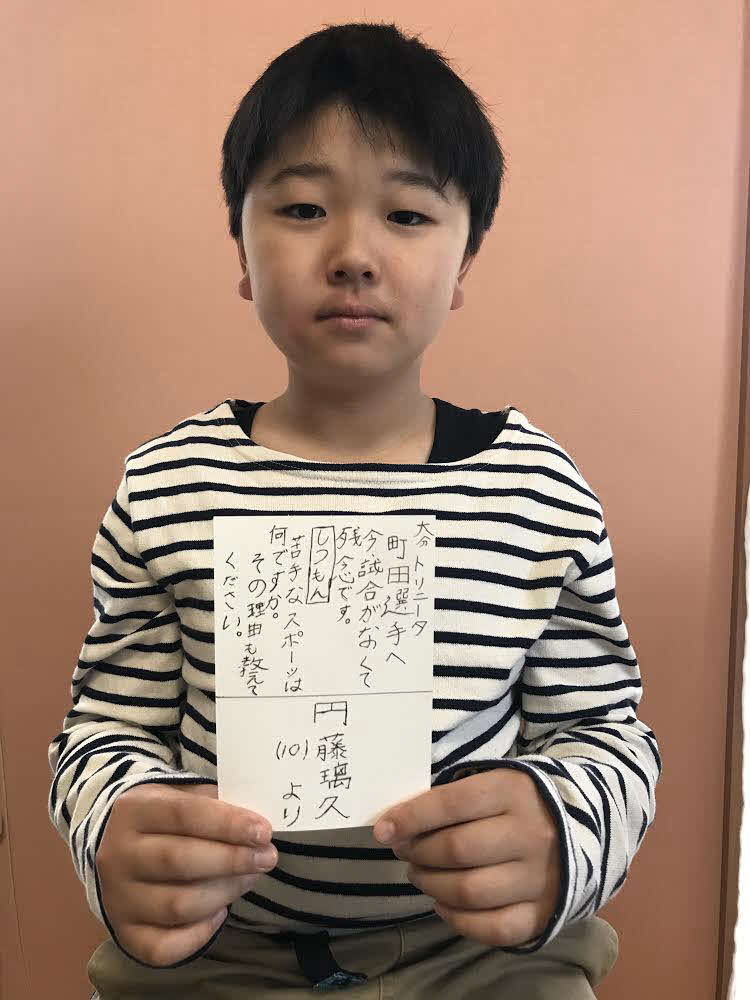 大分トリニータ
町田選手へ
今、試合がなくて
残念です。
しつもん
苦手なスポーツは
何ですか。
その理由も教えて
ください。
円藤璃久
(10)より